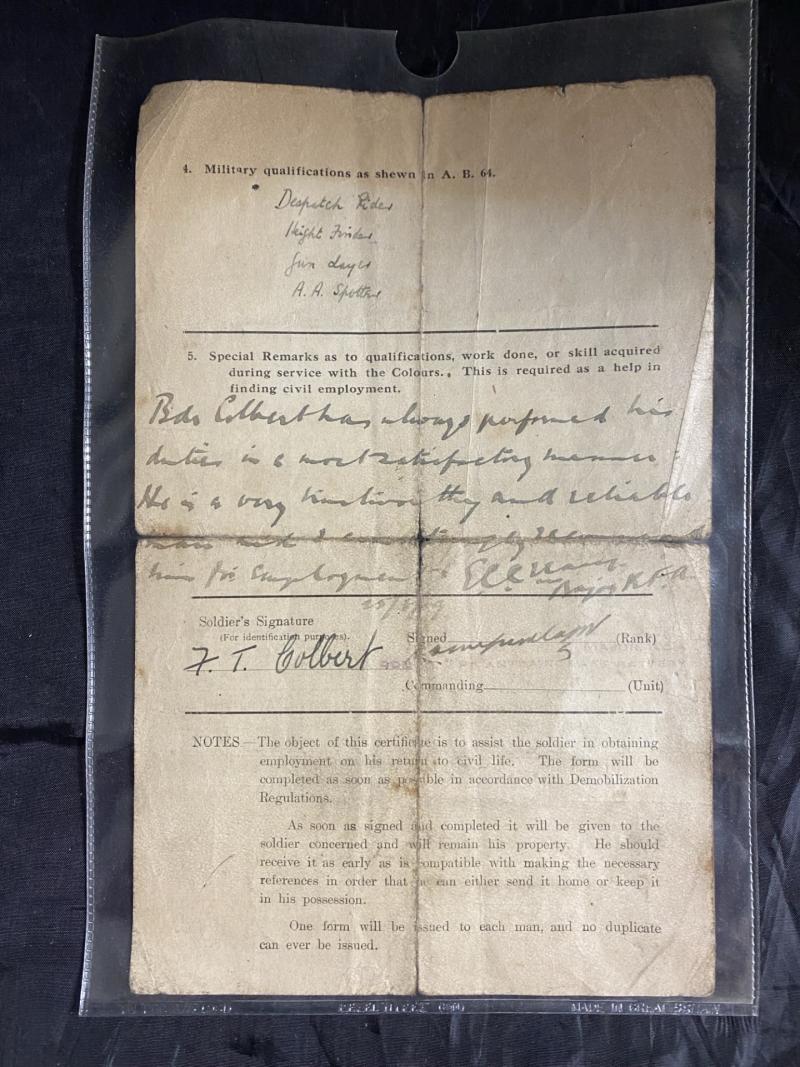 4. Military qualifications as shewn in A. B. 64.
Despatch Rider
Height Finder
Gun Layer
A. A. Spotter
5. Special Remarks as to qualifications, work done, or skill acquired
during service with the Colours. This is required as a help in
finding civil employment.
Bdr Colbert has always performed his
duties in a most satisfactory manner.
He is a very and reliable
man and I recommend
him for employment
Major R.G.A.
Soldier's Signature
(For identification purposes).
Signed (Rank)
F. T. Colbert
Commanding (Unit)
NOTES—The object of this certificate is to assist the soldier in obtaining
employment on his return to civil life. The form will be
completed as soon as possible in accordance with Demobilization
Regulations.
As soon as signed and completed it will be given to the
soldier concerned and will remain his property. He should
receive it as early as is compatible with making the necessary
references in order that he can either send it home or keep it
in his possession.
One form will be issued to each man, and no duplicate
can ever be issued.
MADE IN GREAT BRITAIN